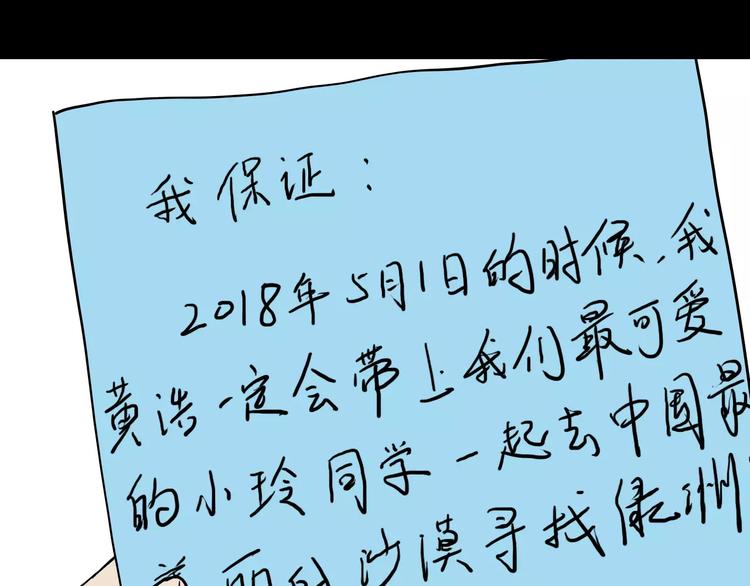 我保证：
2018年5月1日的时候，我
黄浩一定会带上我们最可爱
的小玲同学一起去中国最
美丽的沙漠寻找绿洲